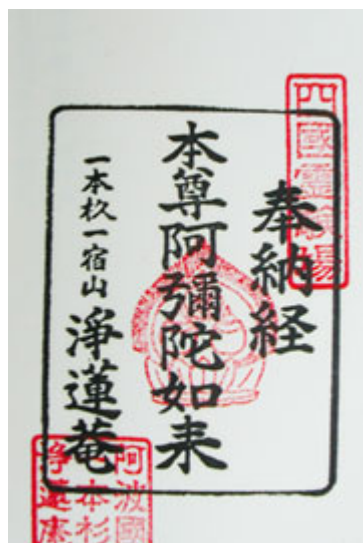 四國
奉納経
本尊阿彌陀如来
一本杦一宿山 淨蓮菴
阿波國
一本杉
淨蓮庵